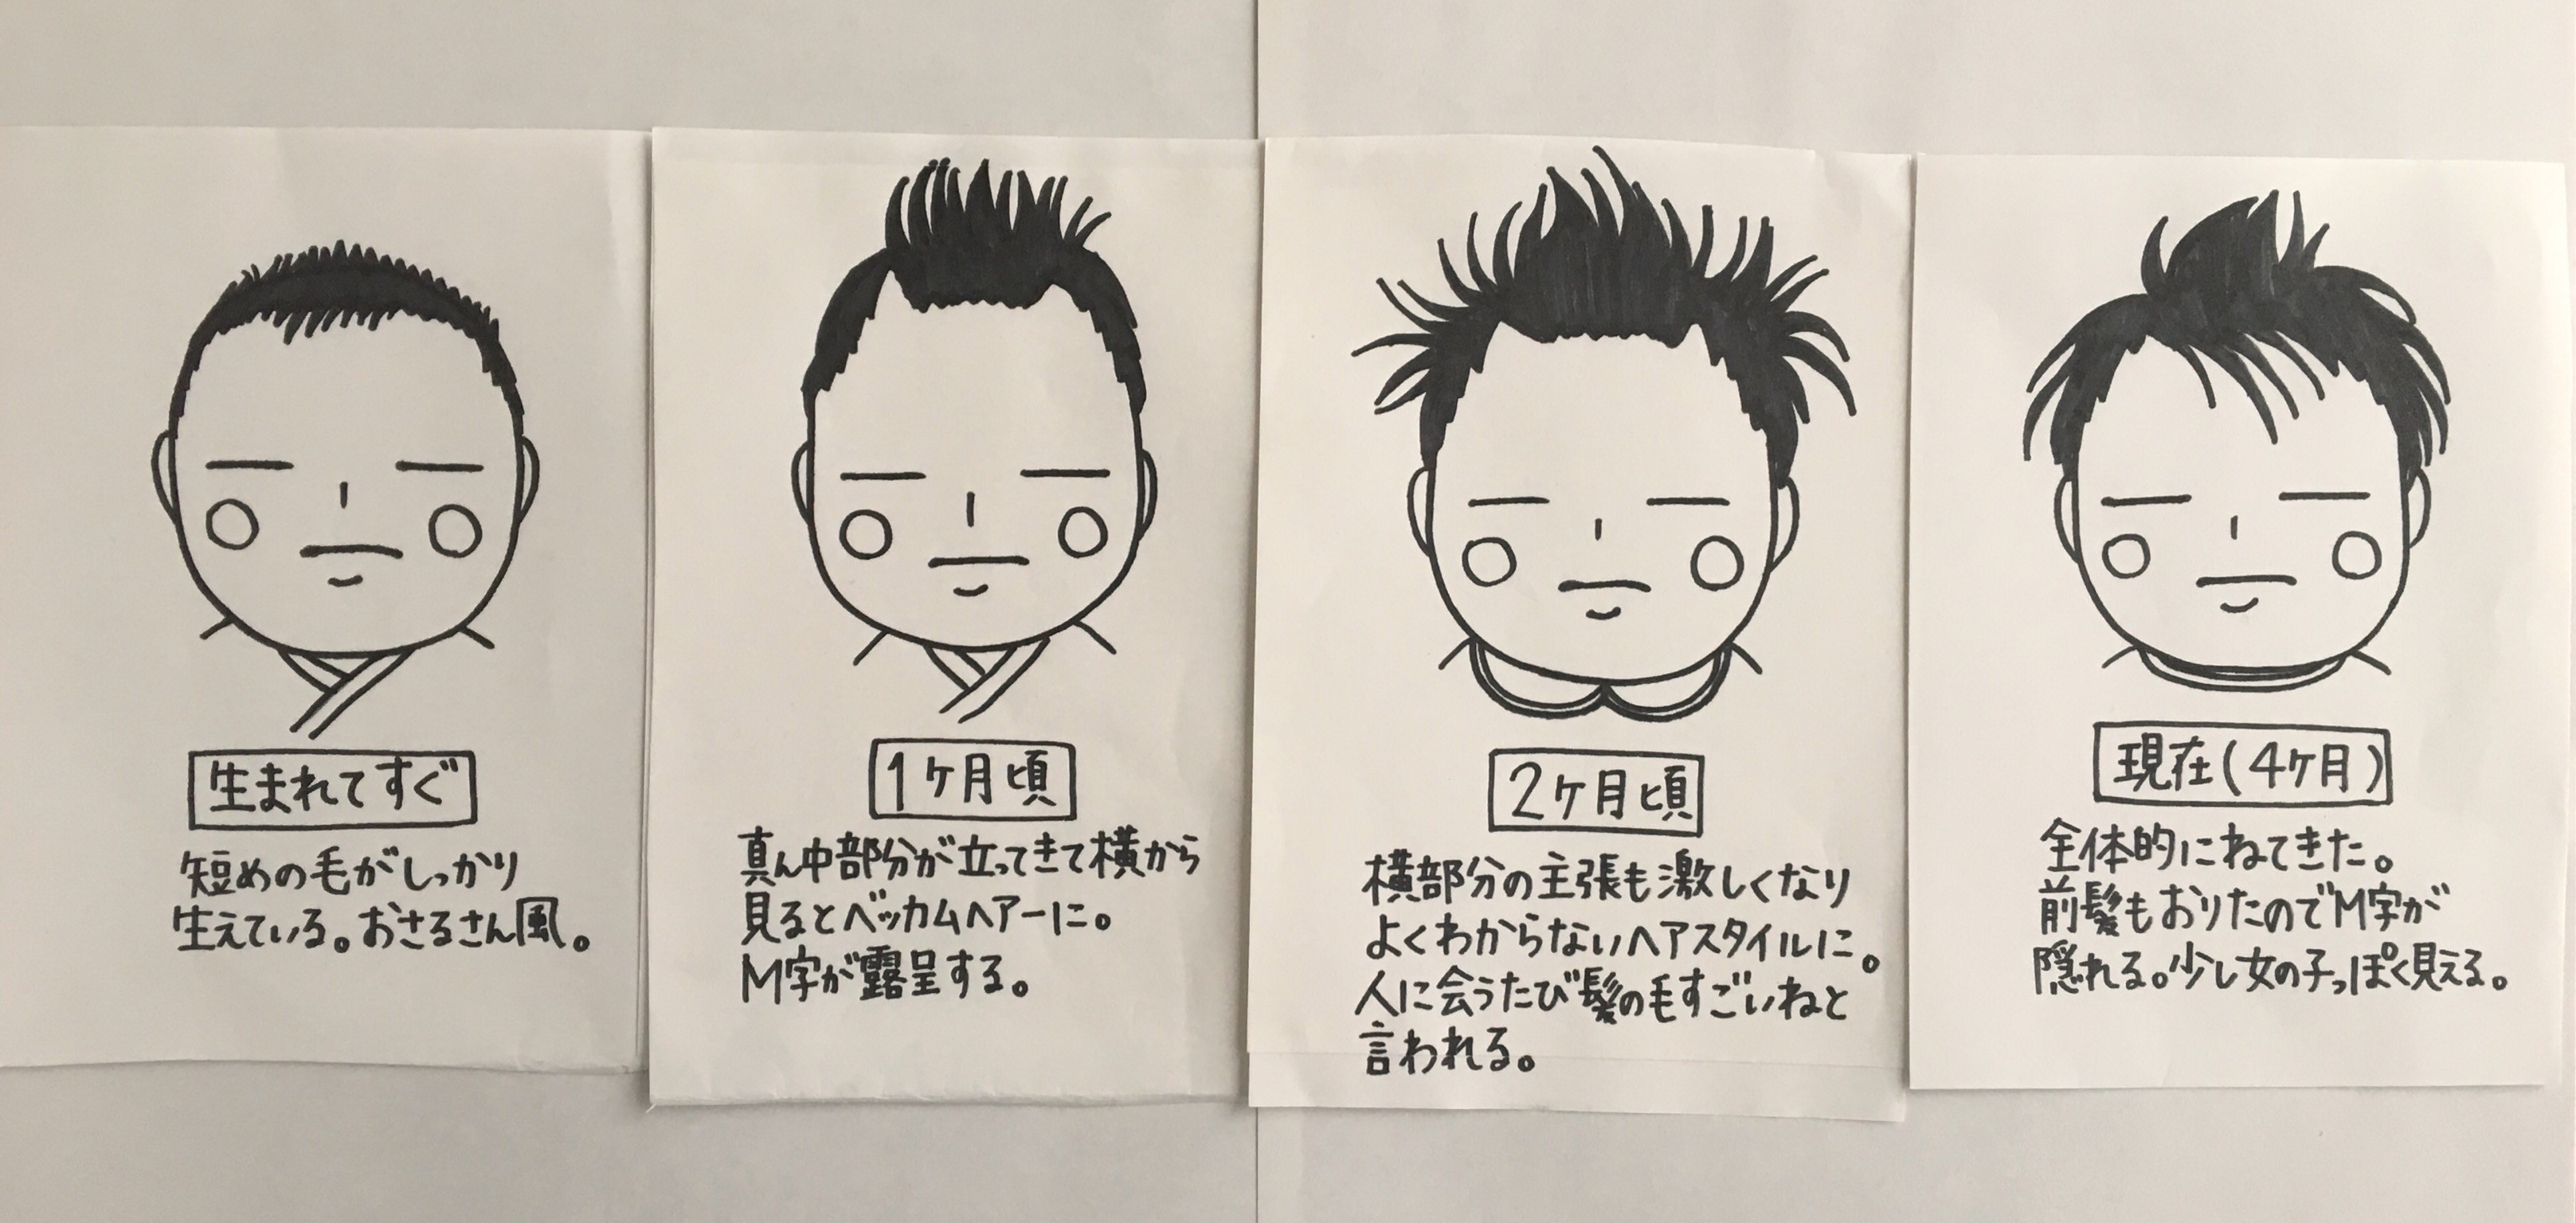 生まれてすぐ
短めの毛がしっかり
生えている。おさるさん風。
1ヶ月頃
真ん中部分が立ってきて横から
見るとベッカムヘアーに。
M字が露呈する。
2ヶ月頃
横部分の主張も激しくなり
よくわからないヘアスタイルに。
人に会うたび髪の毛すごいねと
言われる。
現在(4ヶ月)
全体的にねてきた。
前髪もおりたのでM字が
隠れる。少し女の子っぽく見える。